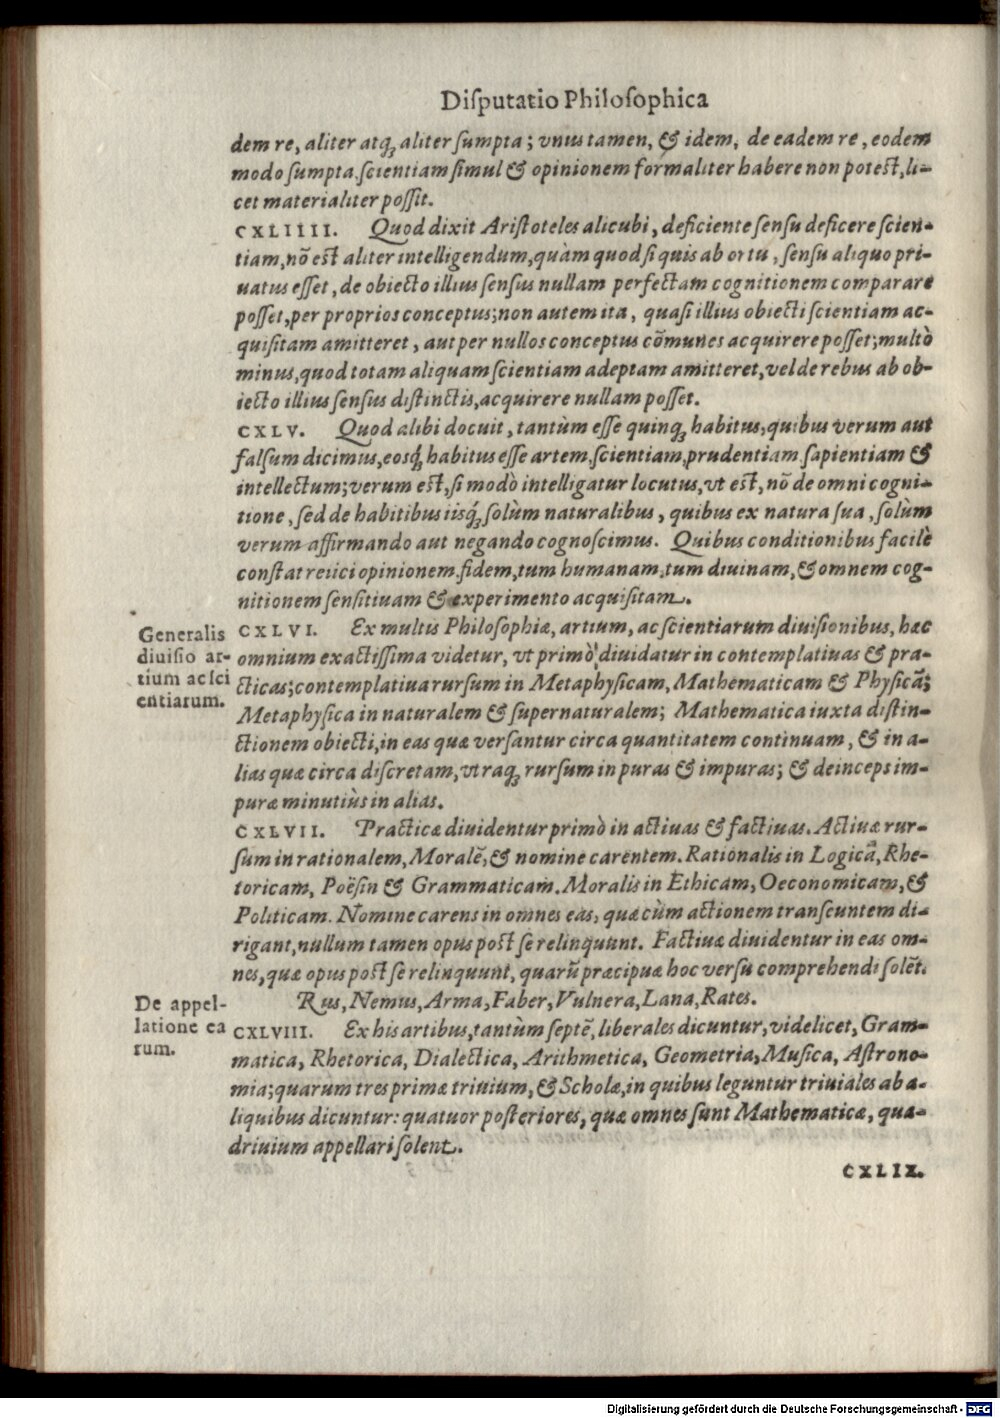 Diſputatio Philoſophica
dem re, aliter atq́; aliter ſumpta; vnius tamen, & idem, de eadem re, eodem
modo ſumpta, ſcientiam ſimul & opinionem formaliter habere non poteſt, li-
cet materialiter poſſit.
CXLIIII. Quod dixit Ariſtoteles alicubi, deficiente ſenſu deficere ſcien-
tiam, nõ eſt aliter intelligendum, quàm quod ſi quis ab ortu, ſenſu aliquo pri-
uatus eſſet, de obiecto illius ſenſus nullam perfectam cognitionem comparare
poſſet, per proprios conceptus; non autem ita, quaſi illius obiecti ſcientiam ac-
quiſitam amitteret, aut per nullos conceptus cõmunes acquirere poſſet; multò
minus, quod totam aliquam ſcientiam adeptam amitteret, vel de rebus ab ob-
iecto illius ſenſus diſtinctis, acquirere nullam poſſet.
CXLV. Quod alibi docuit, tantùm eſſe quinq; habitus, quibus verum aut
falſum dicimus, eosq́; habitus eſſe artem, ſcientiam, prudentiam, ſapientiam &
intellectum; verum eſt, ſi modò intelligatur locutus, vt eſt, nõ de omni cogni-
tione, ſed de habitibus iisq́; ſolùm naturalibus, quibus ex natura ſua, ſolùm
verum affirmando aut negando cognoſcimus. Quibus conditionibus facilè
conſtat reiici opinionem, fidem, tum humanam, tum diuinam, & omnem cog-
nitionem ſenſitiuam & experimento acquiſitam.
Generalis
diuiſio ar-
tium ac ſci
entiarum.
CXLVI. Ex multis Philoſophiæ, artium, ac ſcientiarum diuiſionibus, hæc
omnium exactiſſima videtur, vt primò diuidatur in contemplatiuas & pra-
cticas; contemplatiua rurſum in Metaphyſicam, Mathematicam & Phyſicã;
Metaphyſica in naturalem & ſupernaturalem; Mathematica iuxta diſtin-
ctionem obiecti, in eas quæ verſantur circa quantitatem continuam, & in a-
lias quæ circa diſcretam, vtraq; rurſum in puras & impuras; & deinceps im-
puræ minutiùs in alias.
CXLVII. Practicæ diuidentur primò in actiuas & factiuas. Actiuæ rur-
ſum in rationalem, Moralẽ, & nomine carentem. Rationalis in Logicã, Rhe-
toricam, Poëſin & Grammaticam. Moralis in Ethicam, Oeconomicam, &
Politicam. Nomine carens in omnes eas, quæ cùm actionem tranſeuntem di-
rigant, nullum tamen opus poſt ſe relinquunt. Factiuæ diuidentur in eas om-
nes, quæ opus poſt ſe relinquunt, quarũ præcipuæ hoc verſu comprehendi ſolẽt.
Rus, Nemus, Arma, Faber, Vulnera, Lana, Rates.
De appel-
latione ea
rum.
CXLVIII. Ex his artibus, tantùm ſeptẽ, liberales dicuntur, videlicet, Gram-
matica, Rhetorica, Dialectica, Arithmetica, Geometria, Muſica, Aſtrono-
mia; quarum tres primæ triuium, & Scholæ, in quibus leguntur triuiales ab a-
liquibus dicuntur: quatuor poſteriores, quæ omnes ſunt Mathematicæ, qua-
driuium appellari ſolent.
CXLIX.
Digitalisierung gefördert durch die Deutsche Forschungsgemeinschaft - DFG